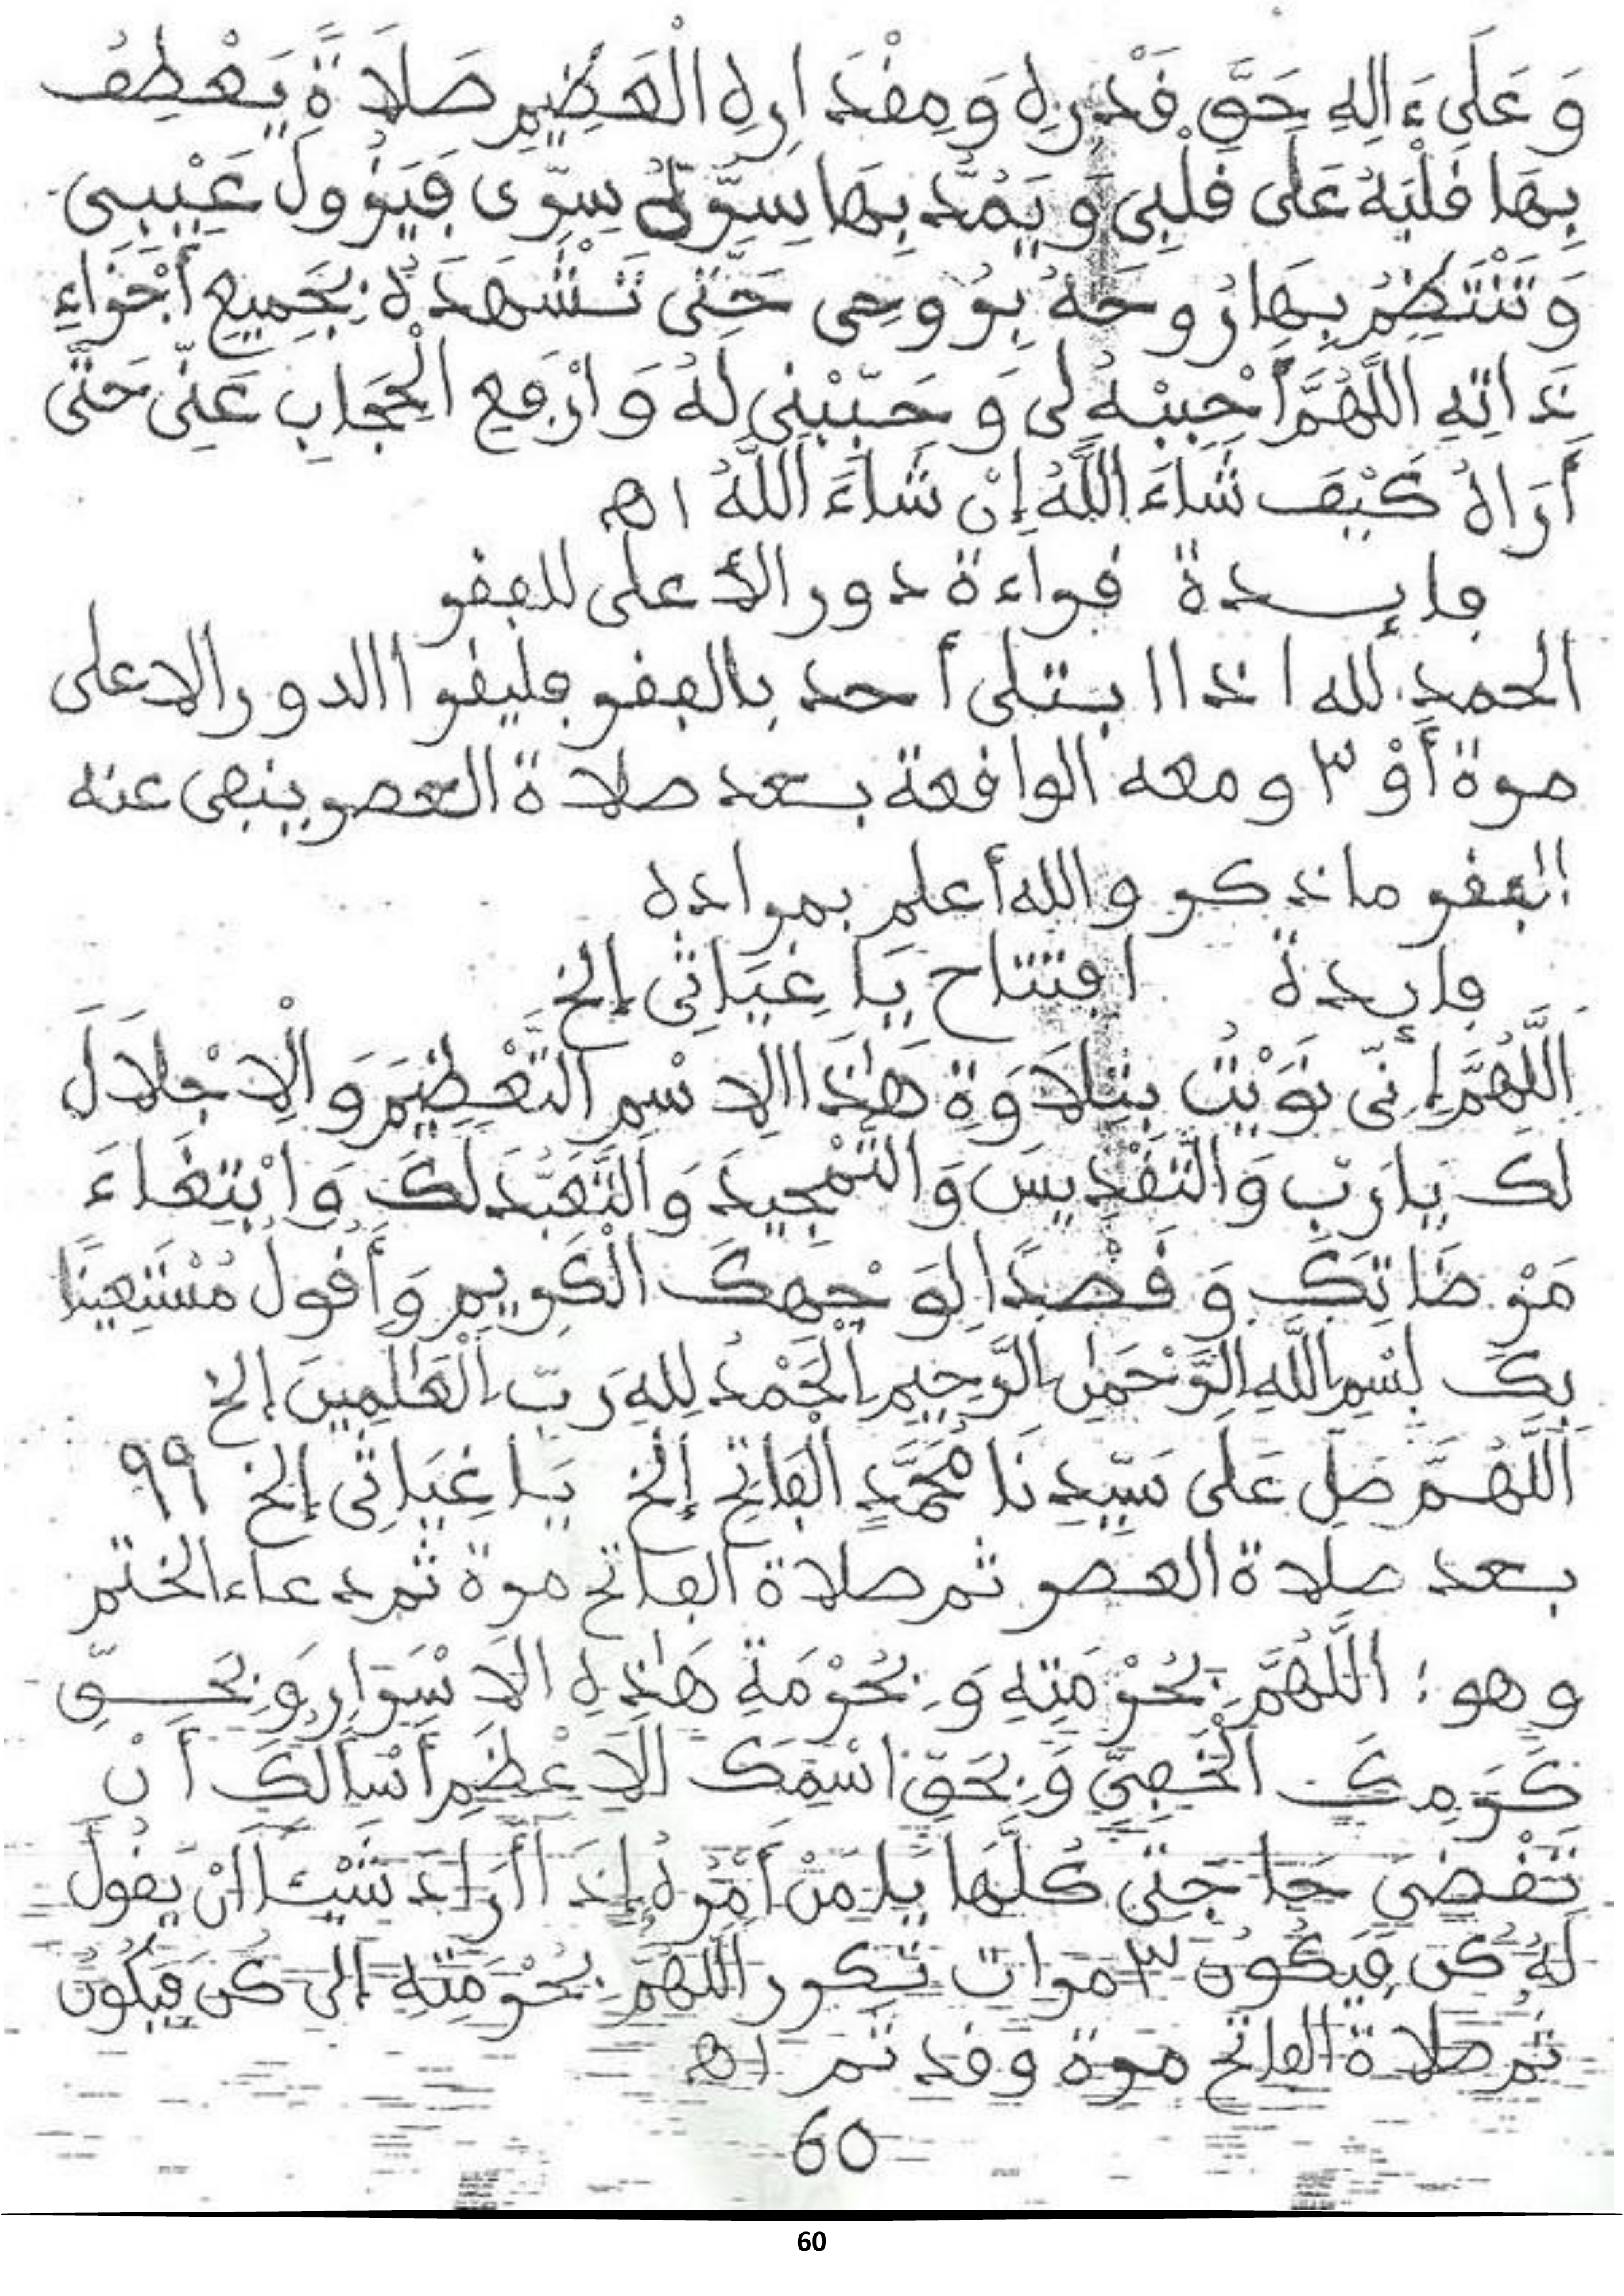 وَعَلَىٰ ءَالِهِ حَقَّ قَدْرِهِ وَمِقْدَارِهِ الْعَظِيمِ صَلَاةً يَعْطِفُ
بِهَا قَلْبَهُ عَلَى قَلْبِي وَيَمُدُّ بِهَا سِرَّهُ سِرِّي فَيَزُولَ غَيْبِي
وَتَنْتَظِمُ بِهَا رُوحَهُ بِرُوحِي حَتَّى تَشْهَدَهُ بِجَمِيعِ أَجْزَاءِ
ذَاتِهِ اللَّهُمَّ أَحْبِبْهُ لِي وَحَبِّبْنِي لَهُ وَارْفَعِ الْحِجَابَ عَنِّي حَتَّى
أَرَاهُ كَيْفَ شَاءَ اللَّهُ إِنْ شَاءَ اللَّهُ اه
فائدة قراءة دور الأعلى للفقر
الحمد لله اذا ابتلى أحد بالفقر فليقرأ الدور الاعلى
مرة أَوْ ٣ ومعه الواقعة بعد صلاة العصر ينفى عنه
الفقر ما ذكر والله أعلم بمراده
فائدة افتتاح يَا غِيَاثِي إلخ
اللَّهُمَّ إِنِّي نَوَيْتُ بِتِلَاوَةِ هَٰذَا الِاسْمِ التَّعْظِيمَ وَالْإِجْلَالَ
لَكَ يَا رَبِّ وَالتَّقْدِيسَ وَالتَّمْجِيدَ وَالتَّعَبُّدَ لَكَ وَابْتِغَاءَ
مَرْضَاتِكَ وَقَصْدًا لِوَجْهِكَ الْكَرِيمِ وَأَقُولُ مُسْتَعِينًا
بِكَ بِسْمِ اللَّهِ الرَّحْمَٰنِ الرَّحِيمِ الْحَمْدُ لِلهِ رَبِّ الْعَالَمِينَ إلخ
اللَّهُمَّ صَلِّ عَلَى سَيِّدِنَا مُحَمَّدٍ الْفَاتِحِ إلخ يَا غِيَاثِي إلخ ٩٩
بعد صلاة العصر ثم صلاة الفاتح مرة ثم دعاء الختم
وهو: اللَّهُمَّ بِحُرْمَتِهِ وَبِحُرْمَةِ هَٰذِهِ الْأَسْرَارِ وَبِحَقِّ
كَرَمِكَ الْخَفِيِّ وَبِحَقِّ اسْمِكَ الْأَعْظَمِ أَسْأَلُكَ أَنْ
تَقْضِيَ حَاجَتِي كُلَّهَا يَا مَنْ أَمْرُهُ إِذَا أَرَادَ شَيْئًا أَنْ يَقُولَ
لَهُ كُن فَيَكُونُ ٣ مرات تكرر اللهم بِحُرْمَتِهِ إلى كُن فَيَكُونُ
ثم صلاة الفاتح مرة وقد تم اه
60
60